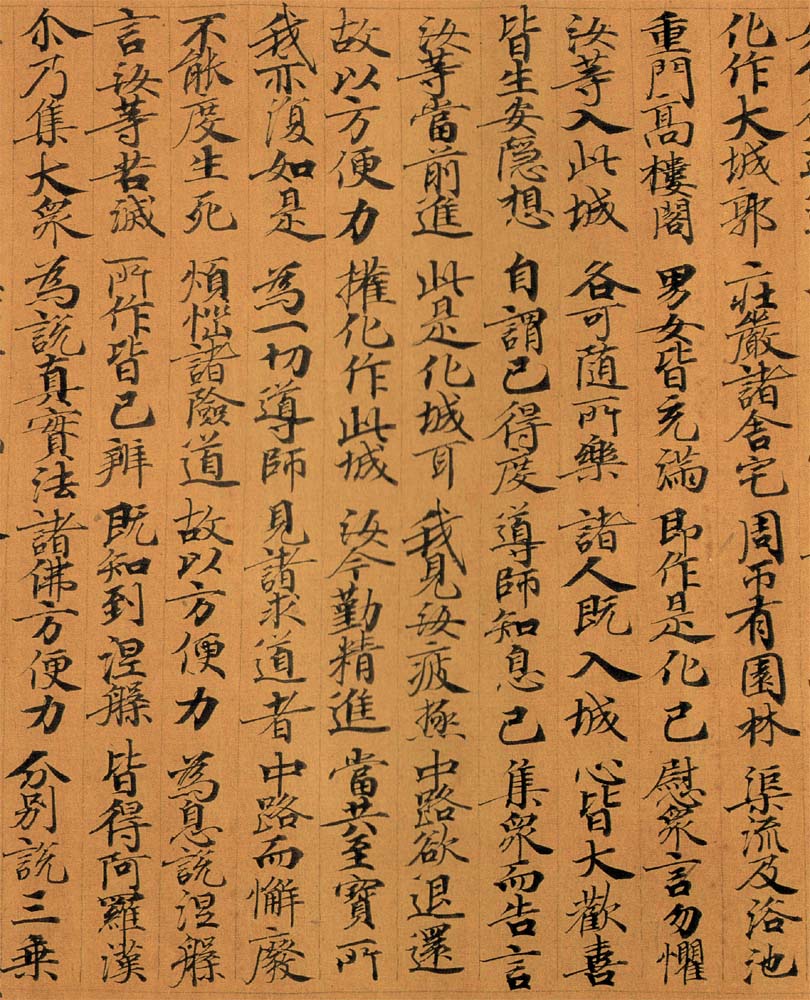 化作大城郭 莊嚴諸舍宅 周帀有園林 渠流及浴池
重門高樓閣 男女皆充滿 即作是化已 慰衆言勿懼
汝等入此城 各可隨所樂 諸人既入城 心皆大歡喜
皆生安隱想 自謂已得度 導師知息已 集衆而告言
汝等當前進 此是化城耳 我見汝疲極 中路欲退還
故以方便力 權化作此城 汝今勤精進 當共至寶所
我亦復如是 為一切導師 見諸求道者 中路而懈廢
不能度生死 煩惱諸險道 故以方便力 為息說涅槃
言汝等苦滅 所作皆已辦 既知到涅槃 皆得阿羅漢
尒乃集大衆 為說真實法 諸佛方便力 分別說三乗